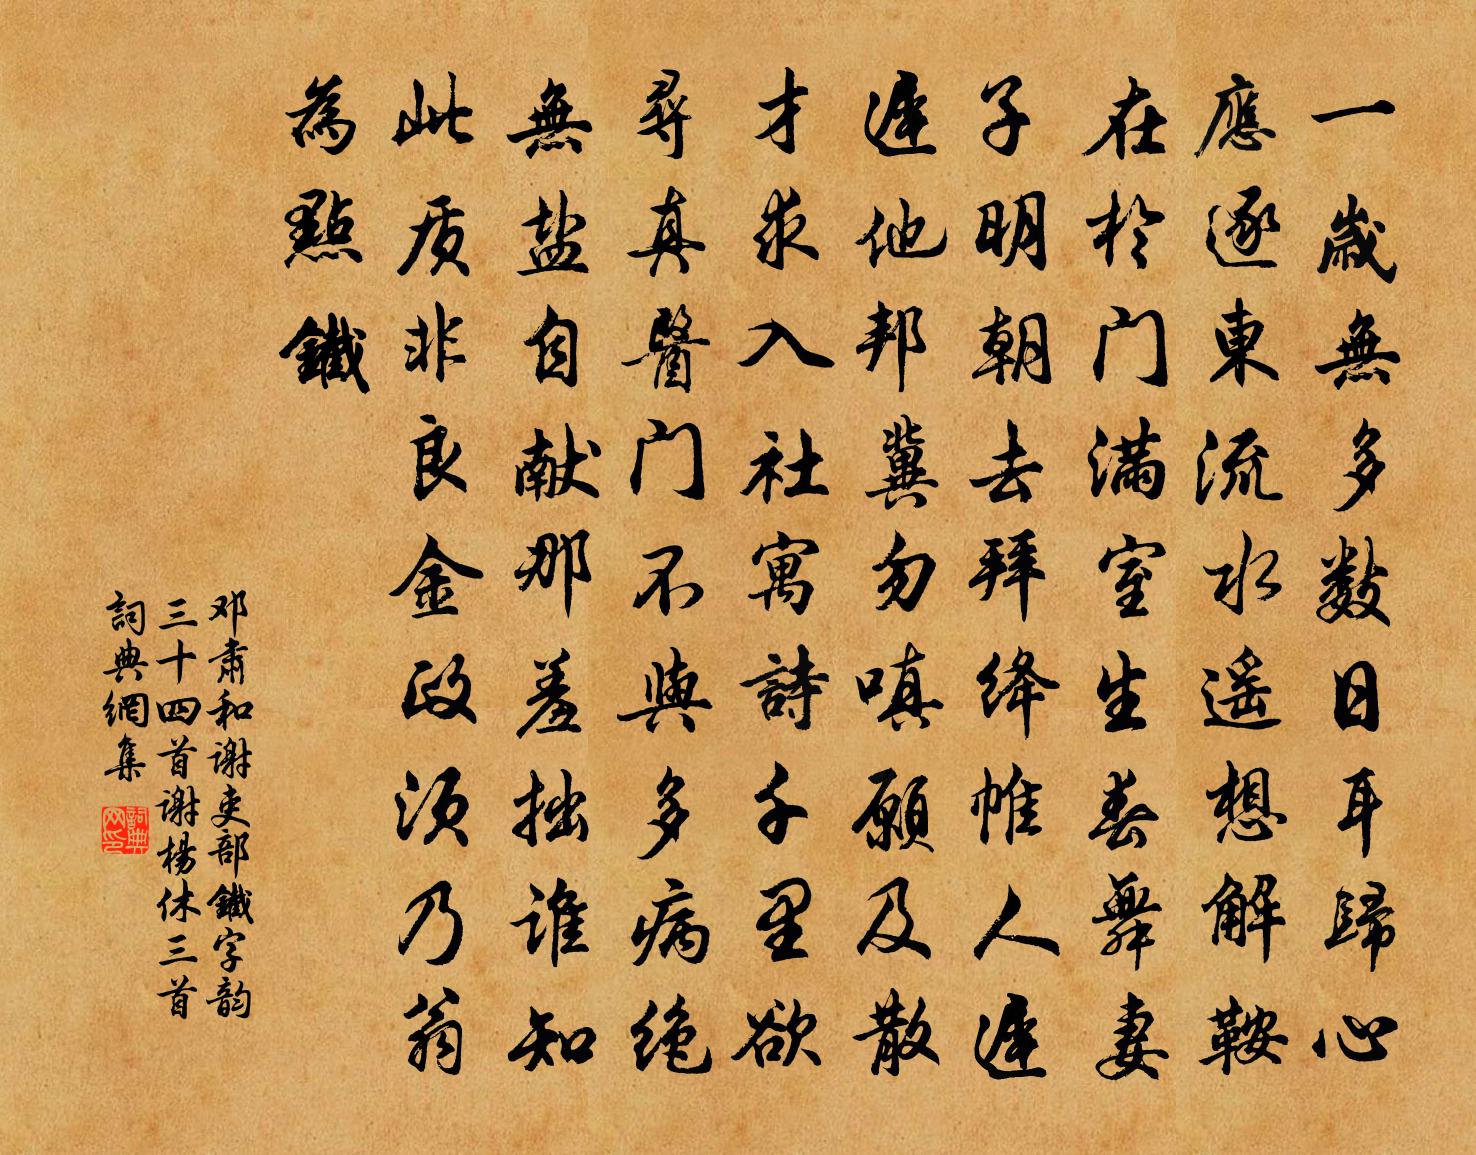 一歲無多数日耳歸心
應逐東流水遥想解鞍
在於门满室生春舞妻
子明朝去拜绛帷人遲
遲他邦冀勿嗔願及散
才求入社寓詩千里欲
尋真醫门不與多病绝
無盐自献那羞拙誰知
此质非良金政须乃翁
為點鐵
邓肃和谢吏部鐵字韵
三十四首谢楊休三首
詞典網集
詞典
网印